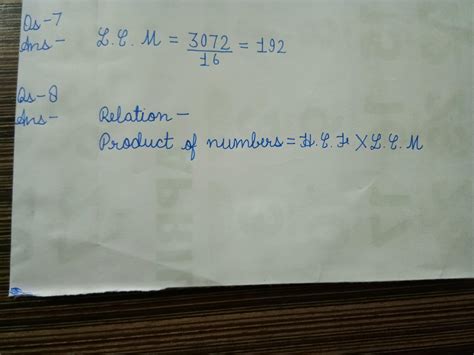 Qs-7
Ans- L.C.M = 3072/16 = 192
Qs-8
Ans- Relation -
Product of numbers = H.C.F X L.C.M